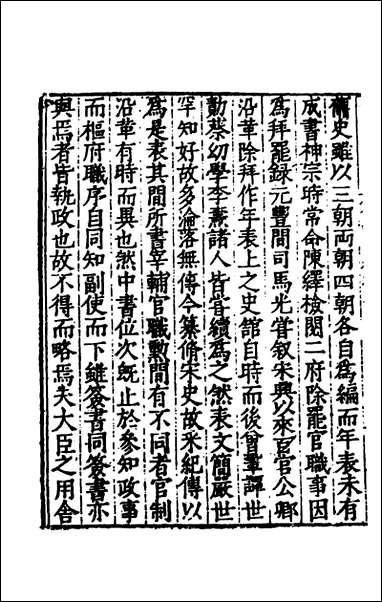 舊史雖以三朝兩朝四朝各自爲編而年表未有
成書神宗時常命陳繹檢閱二府除罷官職事因
爲拜罷錄元豐間司馬光嘗叙宋興以來百官公卿
沿革除拜作年表上之史館自時而後曾鞏譚世
勣蔡幼學李燾諸人皆嘗續爲之然表文簡嚴世
罕知好故多淪落無傳今纂脩宋史故采紀傳以
爲是表其間所書宰輔官職勳間有不同者官制
沿革有時而異也然中書位次旣止於參知政事
而樞府職序自同知副使而下雖簽書同簽書亦
與焉者皆執政也故不得而略焉夫大臣之用舍